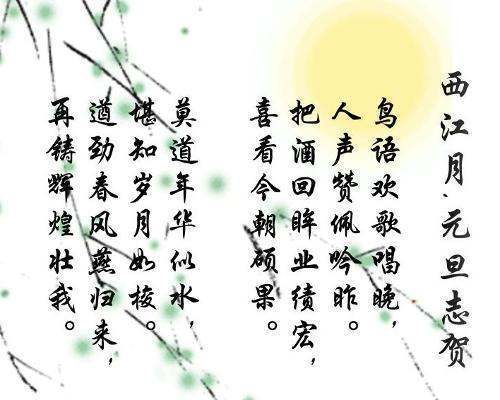 西江月·元旦志贺
鸟语欢歌唱晚，
人声赞佩吟昨。
把酒回眸业绩宏，
喜看今朝硕果。
莫道年华似水，
堪知岁月如梭。
遒劲春风燕归来，
再铸辉煌壮我。